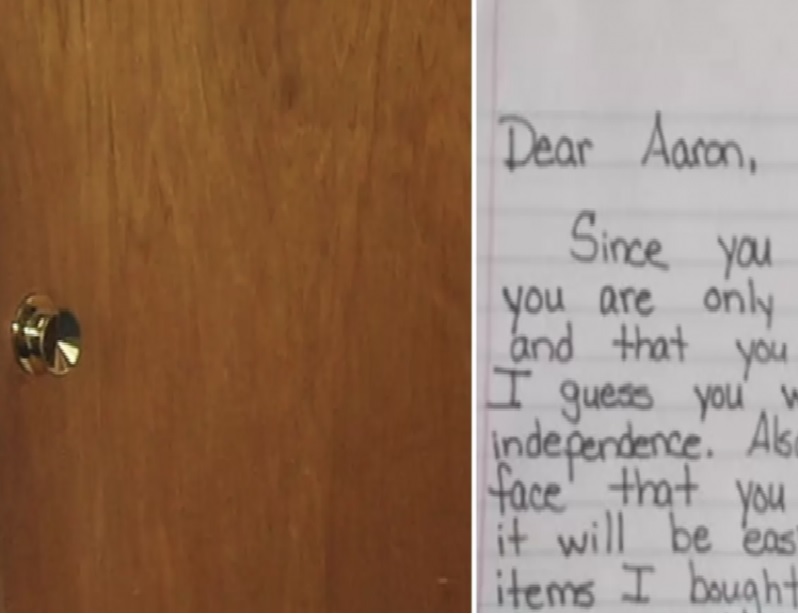 Dear Aaron,
Since you
you are only
and that you
I guess you w
independence. Als
face that you
it will be eas
items I bought